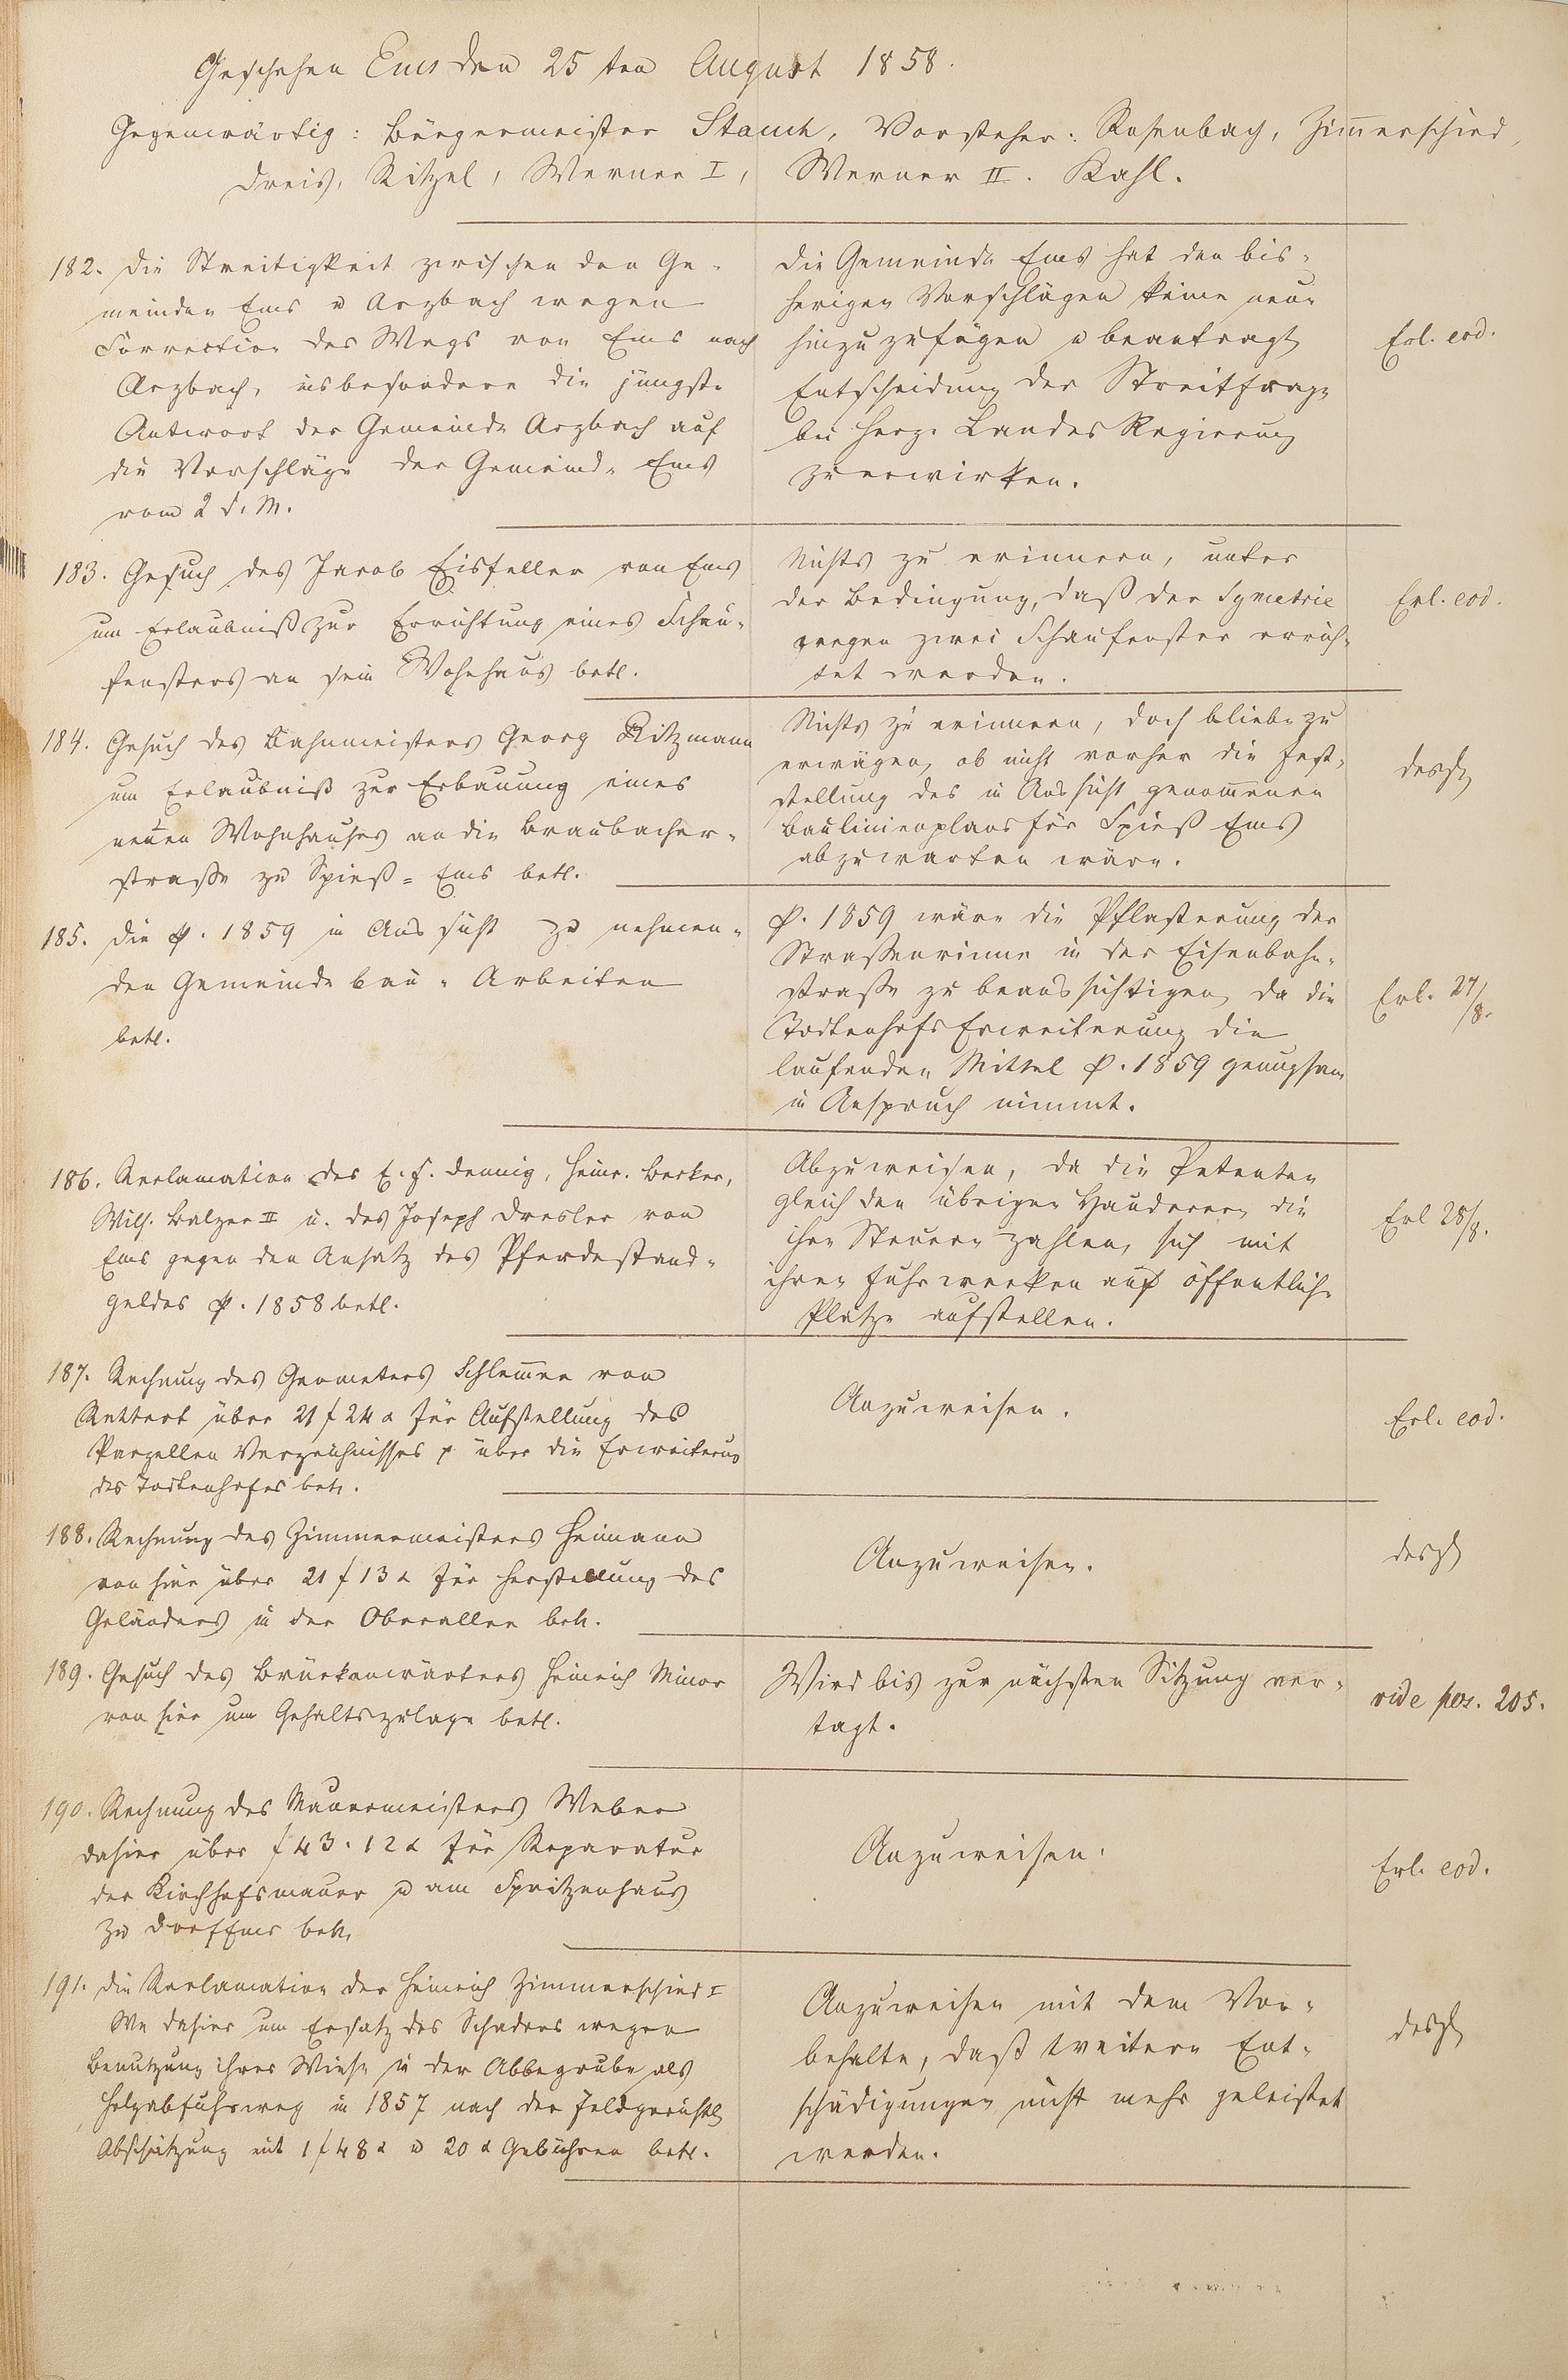 Geschehen Ems den 25ten August 1858.
Gegenwärtig: Bürgermeister Stauch, Vorsteher: Rosenbach, Zim̅erschied,
Dreis, Ritzel, Werner I, Werner II. Kahl.
182. Die Streitigkeit zwischen den Ge-
meinden Ems u Arzbach wegen
Correction des Wegs von Ems nach
Arzbach, insbesondere die jüngste
Antwort der Gemeinde Arzbach auf
die Vorschläge der Gemeinde Ems
vom 2 d. M.
Die Gemeinde Ems hat den bis-
herigen Vorschlägen keine neue
hinzuzufügen u beantragt
Entscheidung der Streitfrage
bei Herz. Landes Regierung
zu erwirken.
Erl. eod.
183. Gesuch des Jacob Eisfeller von Ems
um Erlaubniß zur Errichtung eines Schau-
fensters an sein Wohnhaus betl.
Nichts zu erinnern, unter
der Bedingung, daß der Symetrie
wegen zwei Schaufenster errich-
tet werden.
Erl. eod.
184. Gesuch des Bahnmeisters Georg Ritzmann
um Erlaubniß zur Erbauung eines
neuen Wohnhauses an die Braubacher-
straße zu Spieß-Ems betl.
Nichts zu erinnern, doch bliebe zu
erwägen, ob nicht vorher die Fest-
stellung des in Aussicht genom̅enen
Baulinienplans für Spieß Ems
abzuwarten wäre.
desgl
185. Die p. 1859 in Aussicht zu nehmen-
den Gemeindebau-Arbeiten
betl.
p. 1859 wäre die Pflasterung der
Straßenrinne in der Eisenbahn-
straße zu beaussichtigen, da die
Todtenhofs Erweiterung die
laufenden Mittel p. 1859 genugsam
in Anspruch nimmt.
Erl. 27/8.
186. Reclamation des E. F. Dennig, Heinr. Becker,
Wilh. Balzer II u. des Joseph Dresler von
Ems gegen den Ansatz des Pferdestand-
geldes p. 1858 betl.
Abzuweisen, da die Petenten
gleich den übrigen Hauderern die
ihre Steuern zahlen, sich mit
ihren Fuhrwerken auf öffentliche
Plätze aufstellen.
Erl 28/8.
187. Rechnung des Geometers Schlem̅er von
Kettert über 21 f 24 x für Aufstellung des
Parzellen Verzeichnisses p über die Erweiterung
des Todtenhofes betr.
Anzuweisen.
Erl. eod.
188. Rechnung des Zimmermeisters Heimann
von hier über 21 f 13 x für Herstellung des
Geländers in der Oberallee betr.
Anzuweisen.
desgl
189. Gesuch des Brückenwärters Heinrich Minor
von hier um Gehaltszulage betl.
Wird bis zur nächsten Sitzung ver-
tagt.
vide pos. 205.
190. Rechnung des Mauermeisters Weber
dahier über f 43. 12 x für Reparatur
der Kirchhofsmauer u am Spritzenhaus
zu Dorf Ems betr.
Anzuweisen.
Erl. eod.
191. Die Reclamation der Heinrich Zimmerschied I
We dahier um Ersatz des Schadens wegen
Benutzung ihrer Wiese in der Abbegrube als
Holzabfuhrweg in 1857 nach der feldgerichtl
Abschätzung mit 1 f 48 x u 20 x Gebühren betl.
Anzuweisen mit dem Vor-
behalte, daß weitere Ent-
schädigungen nicht mehr geleistet
werden.
desgl